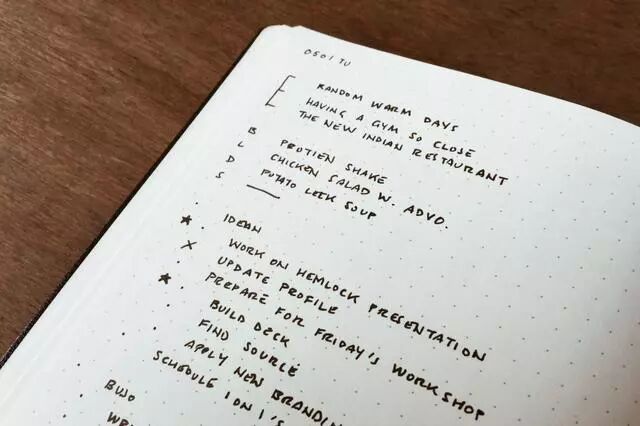 0501 TU
RANDOM WARM DAYS
HAVING A GYM SO CLOSE
THE NEW INDIAN RESTAURANT
B PROTIEN SHAKE
L CHICKEN SALAD W. ADVO.
D POTATO LEEK SOUP
S —
IDEAN
WORK ON HEMLOCK PRESENTATION
UPDATE PROFILE
PREPARE FOR FRIDAY'S WORKSHOP
BUILD DECK
FIND SOURCE
APPLY NEW
SCHEDULE 1 ON 1'S
BUJO